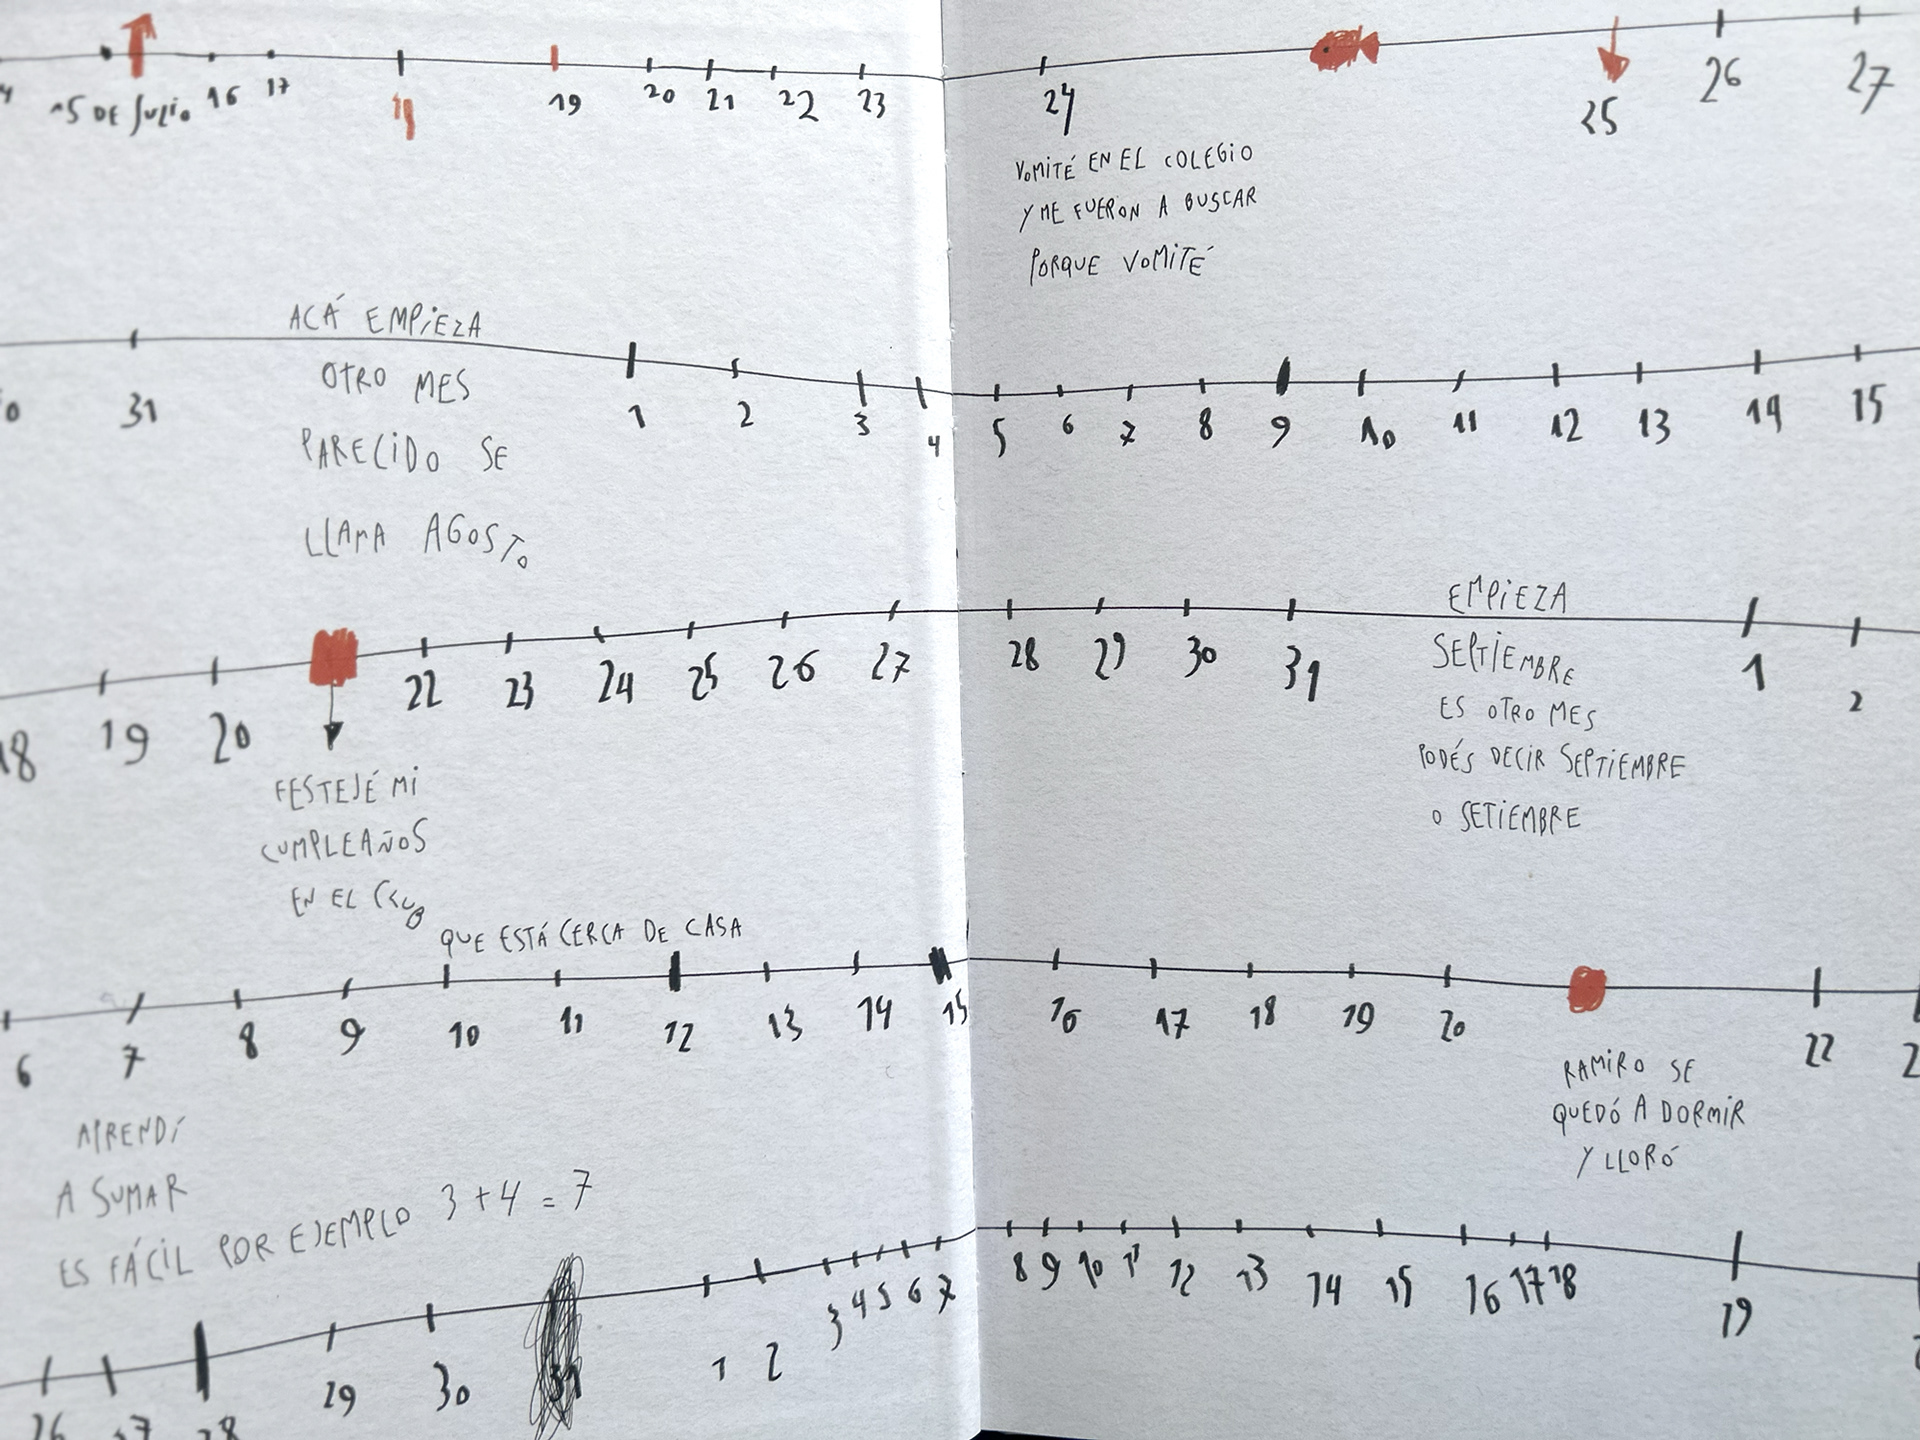 15 DE JULIO 16 17 18 19 20 21 22 23 24 25 26 27
VOMITÉ EN EL COLEGIO
Y ME FUERON A BUSCAR
PORQUE VOMITÉ
31
ACÁ EMPIEZA
OTRO MES
PARECIDO SE
LLAMA AGOSTO
1 2 3 4 5 6 7 8 9 10 11 12 13 14 15
18 19 20 22 23 24 25 26 27 28 29 30 31
FESTEJÉ MI
CUMPLEAÑOS
EN EL CLUB
QUE ESTÁ CERCA DE CASA
EMPIEZA
SEPTIEMBRE
ES OTRO MES
PODÉS DECIR SEPTIEMBRE
O SETIEMBRE
1 2
6 7 8 9 10 11 12 13 14 15 16 17 18 19 20 22
APRENDÍ
A SUMAR
ES FÁCIL POR EJEMPLO 3 + 4 = 7
RAMIRO SE
QUEDÓ A DORMIR
Y LLORÓ
26 27 28 29 30 31 1 2 3 4 5 6 7 8 9 10 11 12 13 14 15 16 17 18 19